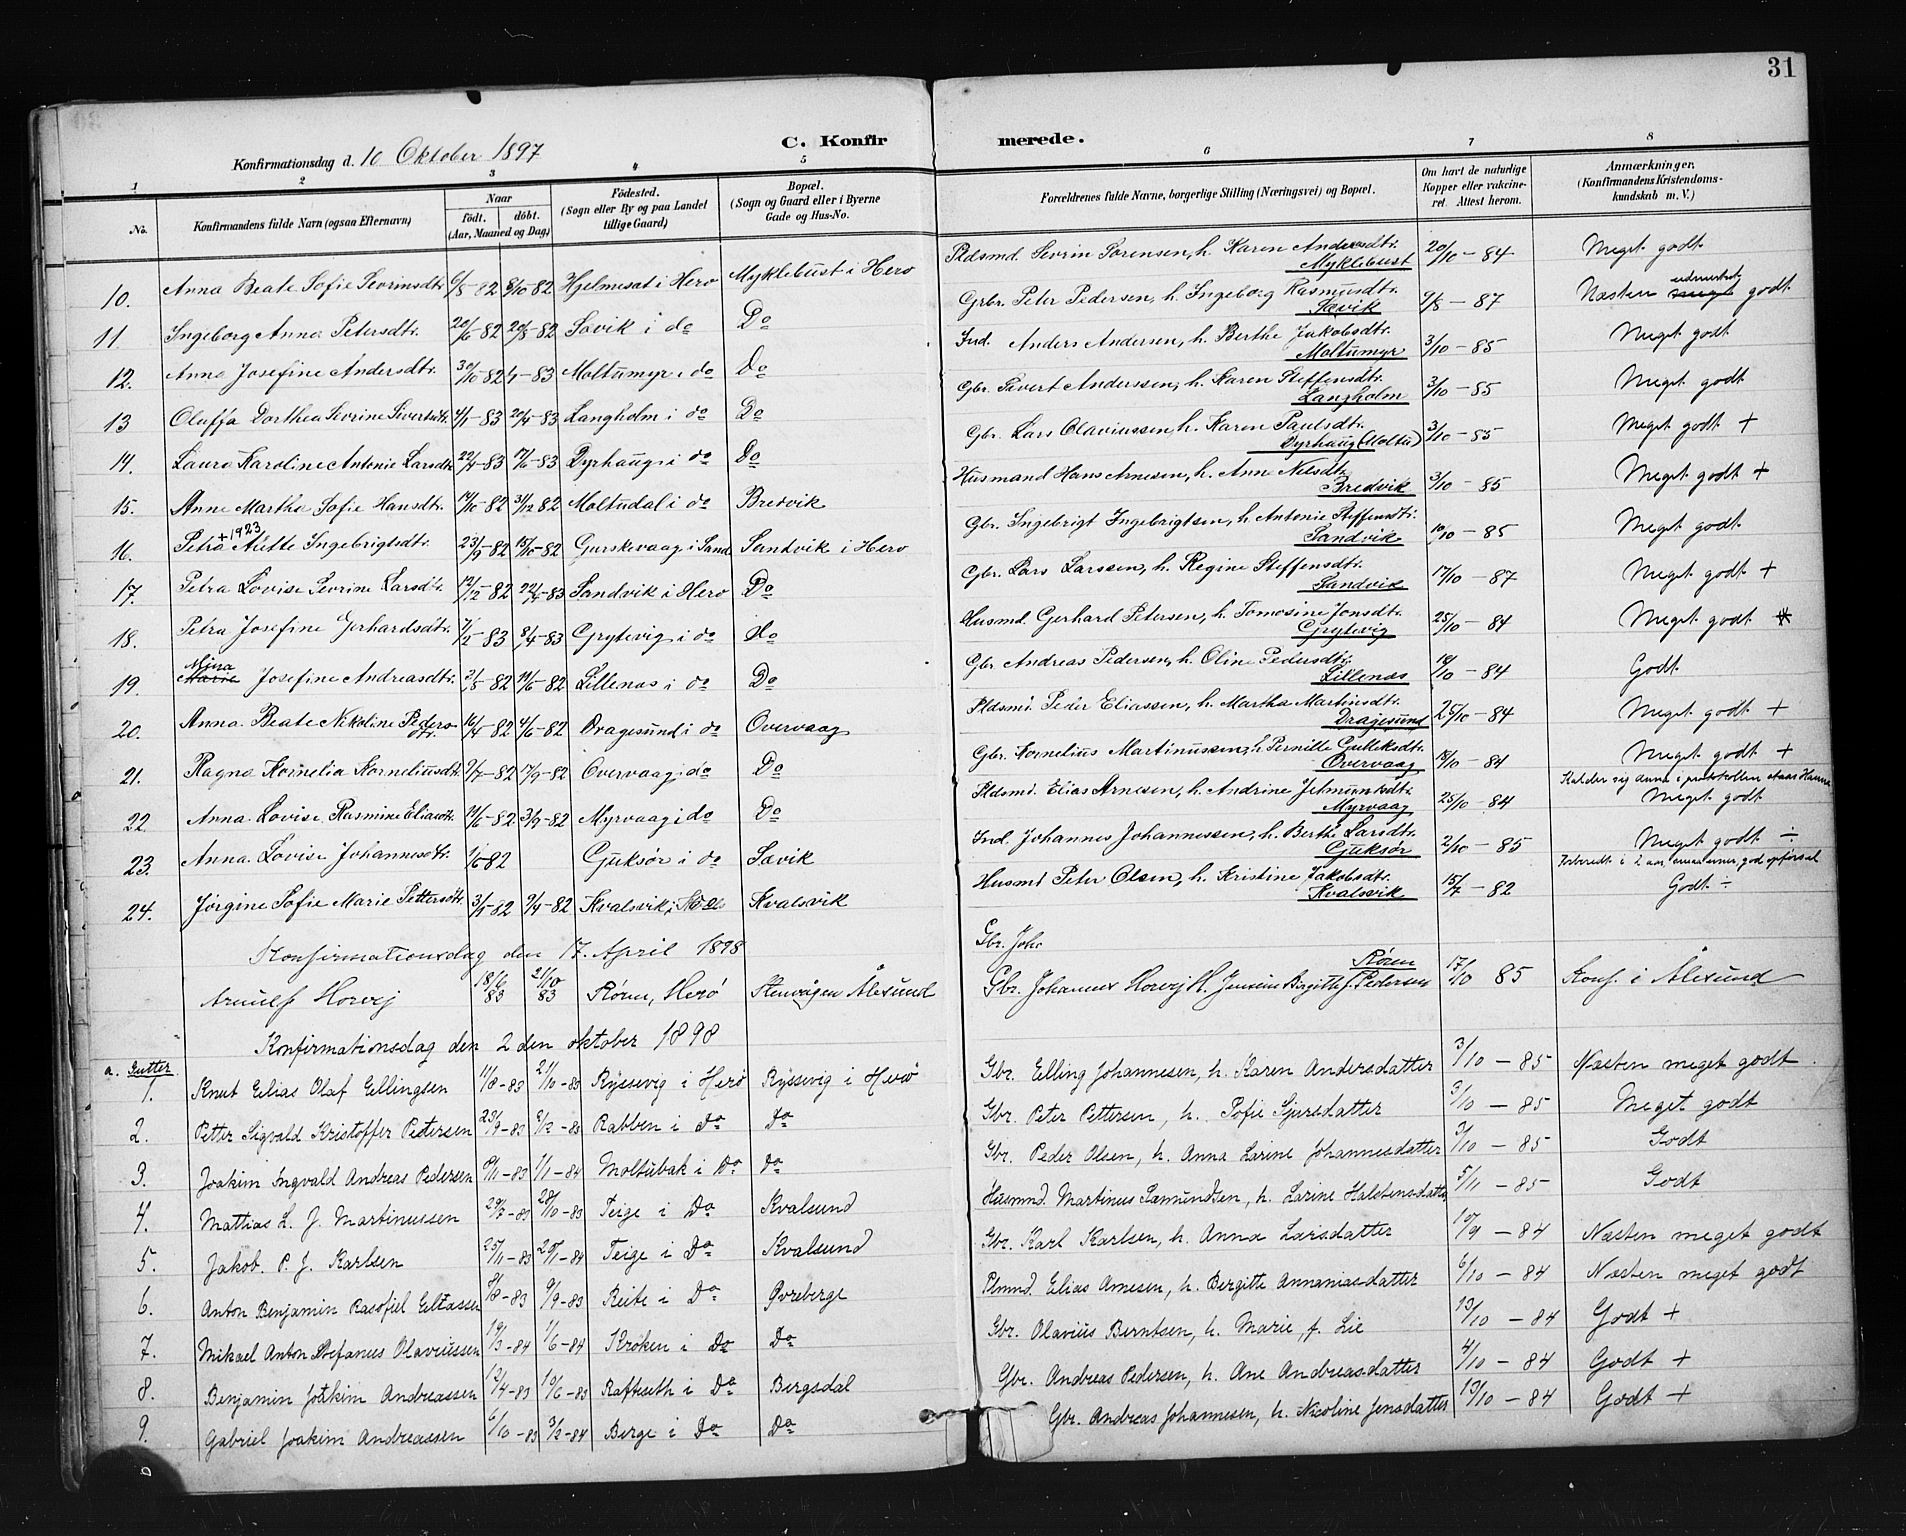 31
C. Konfirmerede.
Konfirmationsdag d. 10 Oktober 1897
1 2 3 4 5 6 7 8
No.
Konfirmandens fulde Navn (ogsaa Efternavn)
Naar
født. døbt.
(Aar, Maaned og Dag)
Födested.
(Sogn eller By og paa Landet
tillige Gaard)
Bopæl.
(Sogn og Gaard eller i Byerne
Gade og Hus-No.
Forældrenes fulde Navne, borgerlige Stilling (Næringsvei) og Bopæl.
Om havt de naturlige
Kopper eller vakcine-
ret. Attest herom.
Anmærkninger.
(Konfirmandens Kristendoms-
kundskab m. V.)
10. Anna Beate Sofie Sevrinsdtr. 6/8-82 8/10-82 Hjelmeset i Herø Myklebust i Herø Pldsmd. Sevrin Sørensen, h. Karen Andersdtr. Myklebust 20/10-84 Meget godt
11. Ingeborg Anna Petersdtr. 20/6-82 20/8-82 Sævik i do Do Grbr. Peter Pedersen, h. Ingeborg Rasmusdtr. Sævik 9/8-87 Næsten udmerket godt
12. Anna Josefine Andersdtr. 30/10-82 Moltumyr i do Do Ind. Anders Andersen, h. Berthe Jakobsdtr. Moltumyr 3/10-85 Meget godt
13 Oluffa Dorthea Sevrine Siversdtr. 4/1-83 20/4-83 Langholm i do Do Gbr. Sivert Anderssen, h. Karen Steffensdtr. Langholm 3/10-85 Meget godt
14. Laura Karoline Antonie Larsdtr. 22/4-83 17/6-83 Dyrhaug i do Do Gbr. Lars Olaviussen, h. Karen Paulsdtr. Dyrhaug (Moltu) 3/10-85 Meget godt +
15. Anne Martha Sofie Hansdtr. 14/10-82 31/12 82 Moltudal i do Bredvik Husmand Hans Arnesen, h. Ane Nilsdtr. Bredvik 3/10-85 Meget godt +
+ 1923
16. Petra Anette Ingebrigtsdtr. 23/9-82 15/10-82 Gurskevaag i Sand Sandvik i Herø Gbr. Ingebrigt Ingebrigtsen, h. Antonie Steffensdtr. Sandvik 10/10-85 Meget godt
17. Petra Lovise Sevrine Larsdtr. 12/12-82 22/4-83 Sandvik i Herø Do Gbr. Lars Larssen, h. Regine Steffensdtr. Sandvik 17/10-87 Meget godt +
18. Petra Josefine Gerhardsdtr. 7/2-83 8/4-83 Grytevig i do do Husmd. Gerhard Petersen, h. Tomosine Jonsdtr. Grytevig 25/10-84 Meget godt
Mina
19. Marie Josefine Andreasdtr. 2/5-82 11/6-82 Lillenæs i do Do Gbr. Andreas Pedersen, h. Oline Pedersdtr. Lillenæs 18/10-84 Godt
20. Anna Beate Nikoline Pedersdtr. 16/4-82 4/6-82 Dragesund i do Overvaag Pldsmd. Peder Eliassen, h. Martha Martinsdtr. Dragesund 25/10-84 Meget godt +
21. Ragna Kornelia Korneliusdtr. 9/7-82 17/9-82 Overvaag i do Do Gbr. Kornelius Martinussen, h. Pernille Gulleksdtr. Overvaag 18/10-84 Meget godt +
22. Anna Lovise Rasmine Eliasdtr. 11/6-82 3/9-82 Myrvaag i do Do Pldsmd. Elias Arnesen, h. Andrine Jetmundsdtr. Myrvaag 25/10-84 Kalder sig Anna i protokollen staar Hanna Meget godt
23. Anna Lovise Johannesdtr. 1/6-82 Gjuksør i do Sævik Ind. Johannes Johannessen, h. Berthe Larsdtr. Gjuksør 2/10-85 Meget godt ÷
24. Jørgine Sofie Marie Pettersdtr. 3/1-82 9/4-82 Kvalsvik i Kvalsvik Husmd Peter Olsen, h. Kristine Jakobsdtr. Kvalsvik 15/7-82 Forberedt i 2 aar, god opførsel Godt ÷
Konfirmationsdag den 17. April 1898
Gbr. Joh
Arnulf Horvej 18/6 83 21/10 83 Røren, Herø Stenvågen Ålesund Gbr. Johannes Horvej H. Jensine Birgitte J. Pedersen Røren 17/10 85 Konf. i Ålesund
Konfirmationsdag den 2 den oktober 1898
a. Gutter.
1. Knut Elias Olaf Ellingsen 11/8-83 21/10-83 Ryssevig i Herø Ryssevig i Herø Gbr. Elling Johannesen, h. Karen Andersdatter 3/10-85 Næsten meget godt
2. Petter Sigvald Kristoffer Petersen 23/9-83 2/12-83 Rabben i Do Do Gbr. Peter Pettersen, h. Sofie Sjursdatter 3/10-85 Meget godt
3. Joakim Ingvald Andreas Pedersen 8/11-83 1/1-84 Moltubak i Do Do Gbr. Peder Olsen, h. Anna Larine Johannesdatter 3/10-85 Godt
4. Mattias L. J. Martinussen 29/7-83 28/10-83 Teige i Do Kvalsund Husmnd. Martinus Samundsen, h. Larine Halstensdatter 5/11-85 Godt
5. Jakob P. J. Karlsen 25/11-83 20/1-84 Teige i Do Kvalsund Gbr. Karl Karlsen, h. Anna Larsdatter 10/9-84 Næsten meget godt
6. Anton Benjamin Rasofiel Eliassen 8/8-83 9/9-83 Reite i Do Øvreberge Plmnd. Elias Arnesen, h. Bergitte Annaniasdatter 6/10-84 Næsten meget godt
7. Mikael Anton Stefanus Olaviussen 19/3-84 1/6-84 Krøken i Do Do Gbr. Olavius Berntsen, h. Marie, f. Lie 13/10-84 Godt +
8. Benjamin Joakim Andreassen 12/4-83 10/6-83 Rafteseth i Do Bergsdal Gbr. Andreas Pedersen, h. Ane Andreasdatter 4/10-84 Godt +
9. Gabriel Joakim Andreassen 6/10-83 3/2-84 Berge i Do Do Gbr. Andreas Johannesen, h. Nicoline Jensdatter 13/10-84 Godt +